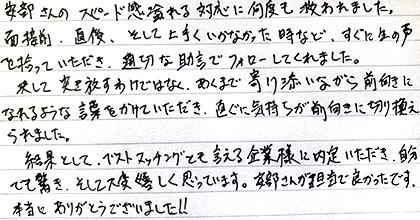 安部さんのスピード感溢れる対応に何度も救われました。
面接前、直後、そして上手くいかなかった時など、すぐに生の声
を拾っていただき、適切な助言でフォローしてくれました。
決して突き放すわけではなく、あくまで寄り添いながら前向きに
なれるような言葉をかけていただき、直ぐに気持ちが前向きに切り換え
られました。
結果として、ベストマッチングとも言える企業様に内定いただき、自分
でも驚き、そして大変嬉しく思っています。安部さんが担当で良かったです。
本当にありがとうございました!!